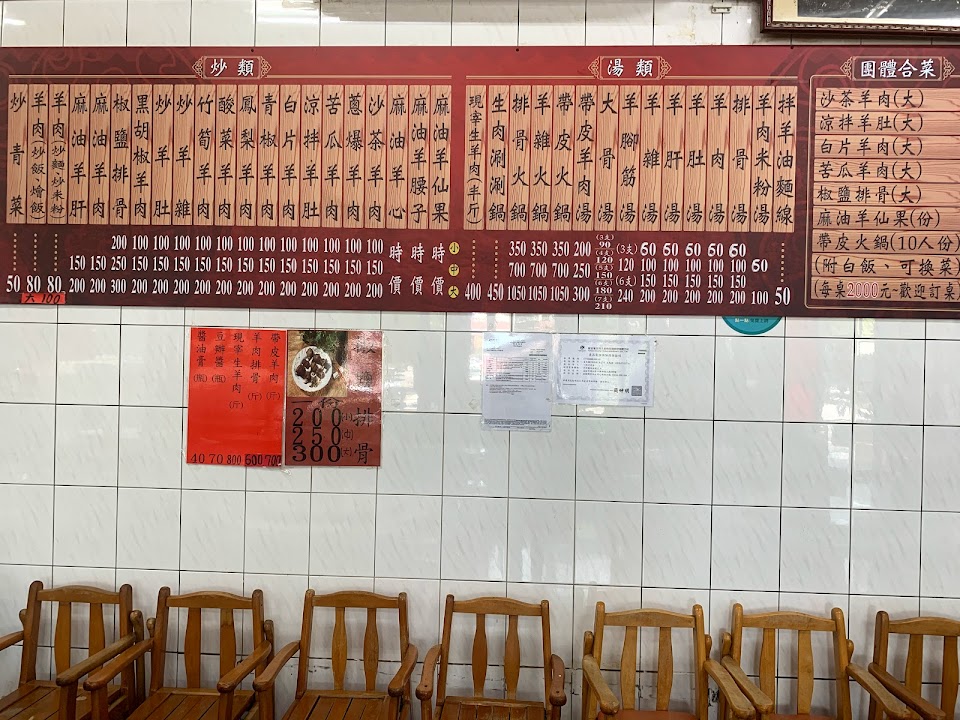 炒類
炒青菜
羊肉(炒飯、燴飯)
羊肉(炒麵、炒米粉)
麻油羊肝
麻油羊肉
椒鹽排骨
黑胡椒羊肉
炒羊肚
炒羊雜
竹筍羊肉
酸菜羊肉
鳳梨羊肉
青椒羊肉
白片羊肉
涼拌羊肚
苦瓜羊肉
蔥爆羊肉
沙茶羊肉
麻油羊心
麻油羊腰子
麻油羊仙果
200 100 100 100 100 100 100 100 100 100 100 100 100 時價 時價 時價 小
150 150 250 150 150 150 150 150 150 150 150 150 150 150 150 中
50 80 80 200 200 300 200 200 200 200 200 200 200 200 200 200 200 200 大
大 100
湯類
現宰生羊肉(半斤)
生肉涮涮鍋
排骨火鍋
羊雜火鍋
帶皮火鍋
帶皮羊肉湯
大骨湯
羊腳筋湯
羊雜湯
羊肝湯
羊肚湯
羊肉湯
排骨湯
羊肉米粉湯
拌羊油麵線
350 350 350 200 (3支) 90 (3支) 60 60 60 60 60
700 700 700 250 (4支) 120 (5支) 150 120 100 100 100 100 100 60
400 450 1050 1050 1050 300 (6支) 180 (7支) 210 (6支) 240 150 150 150 150 150
200 200 200 200 200 100 50
團體合菜
沙茶羊肉(大)
涼拌羊肚(大)
白片羊肉(大)
苦瓜羊肉(大)
椒鹽排骨(大)
麻油羊仙果(份)
帶皮火鍋(10人份)
(附白飯 可換菜)
(每桌2000元-歡迎訂桌)
醬油膏(瓶) 40
豆瓣醬(瓶) 70
現宰生羊肉(斤) 800
羊肉排骨(斤) 600
帶皮羊肉(斤) 700
椒鹽排骨
200(小)
250(中)
300(大)